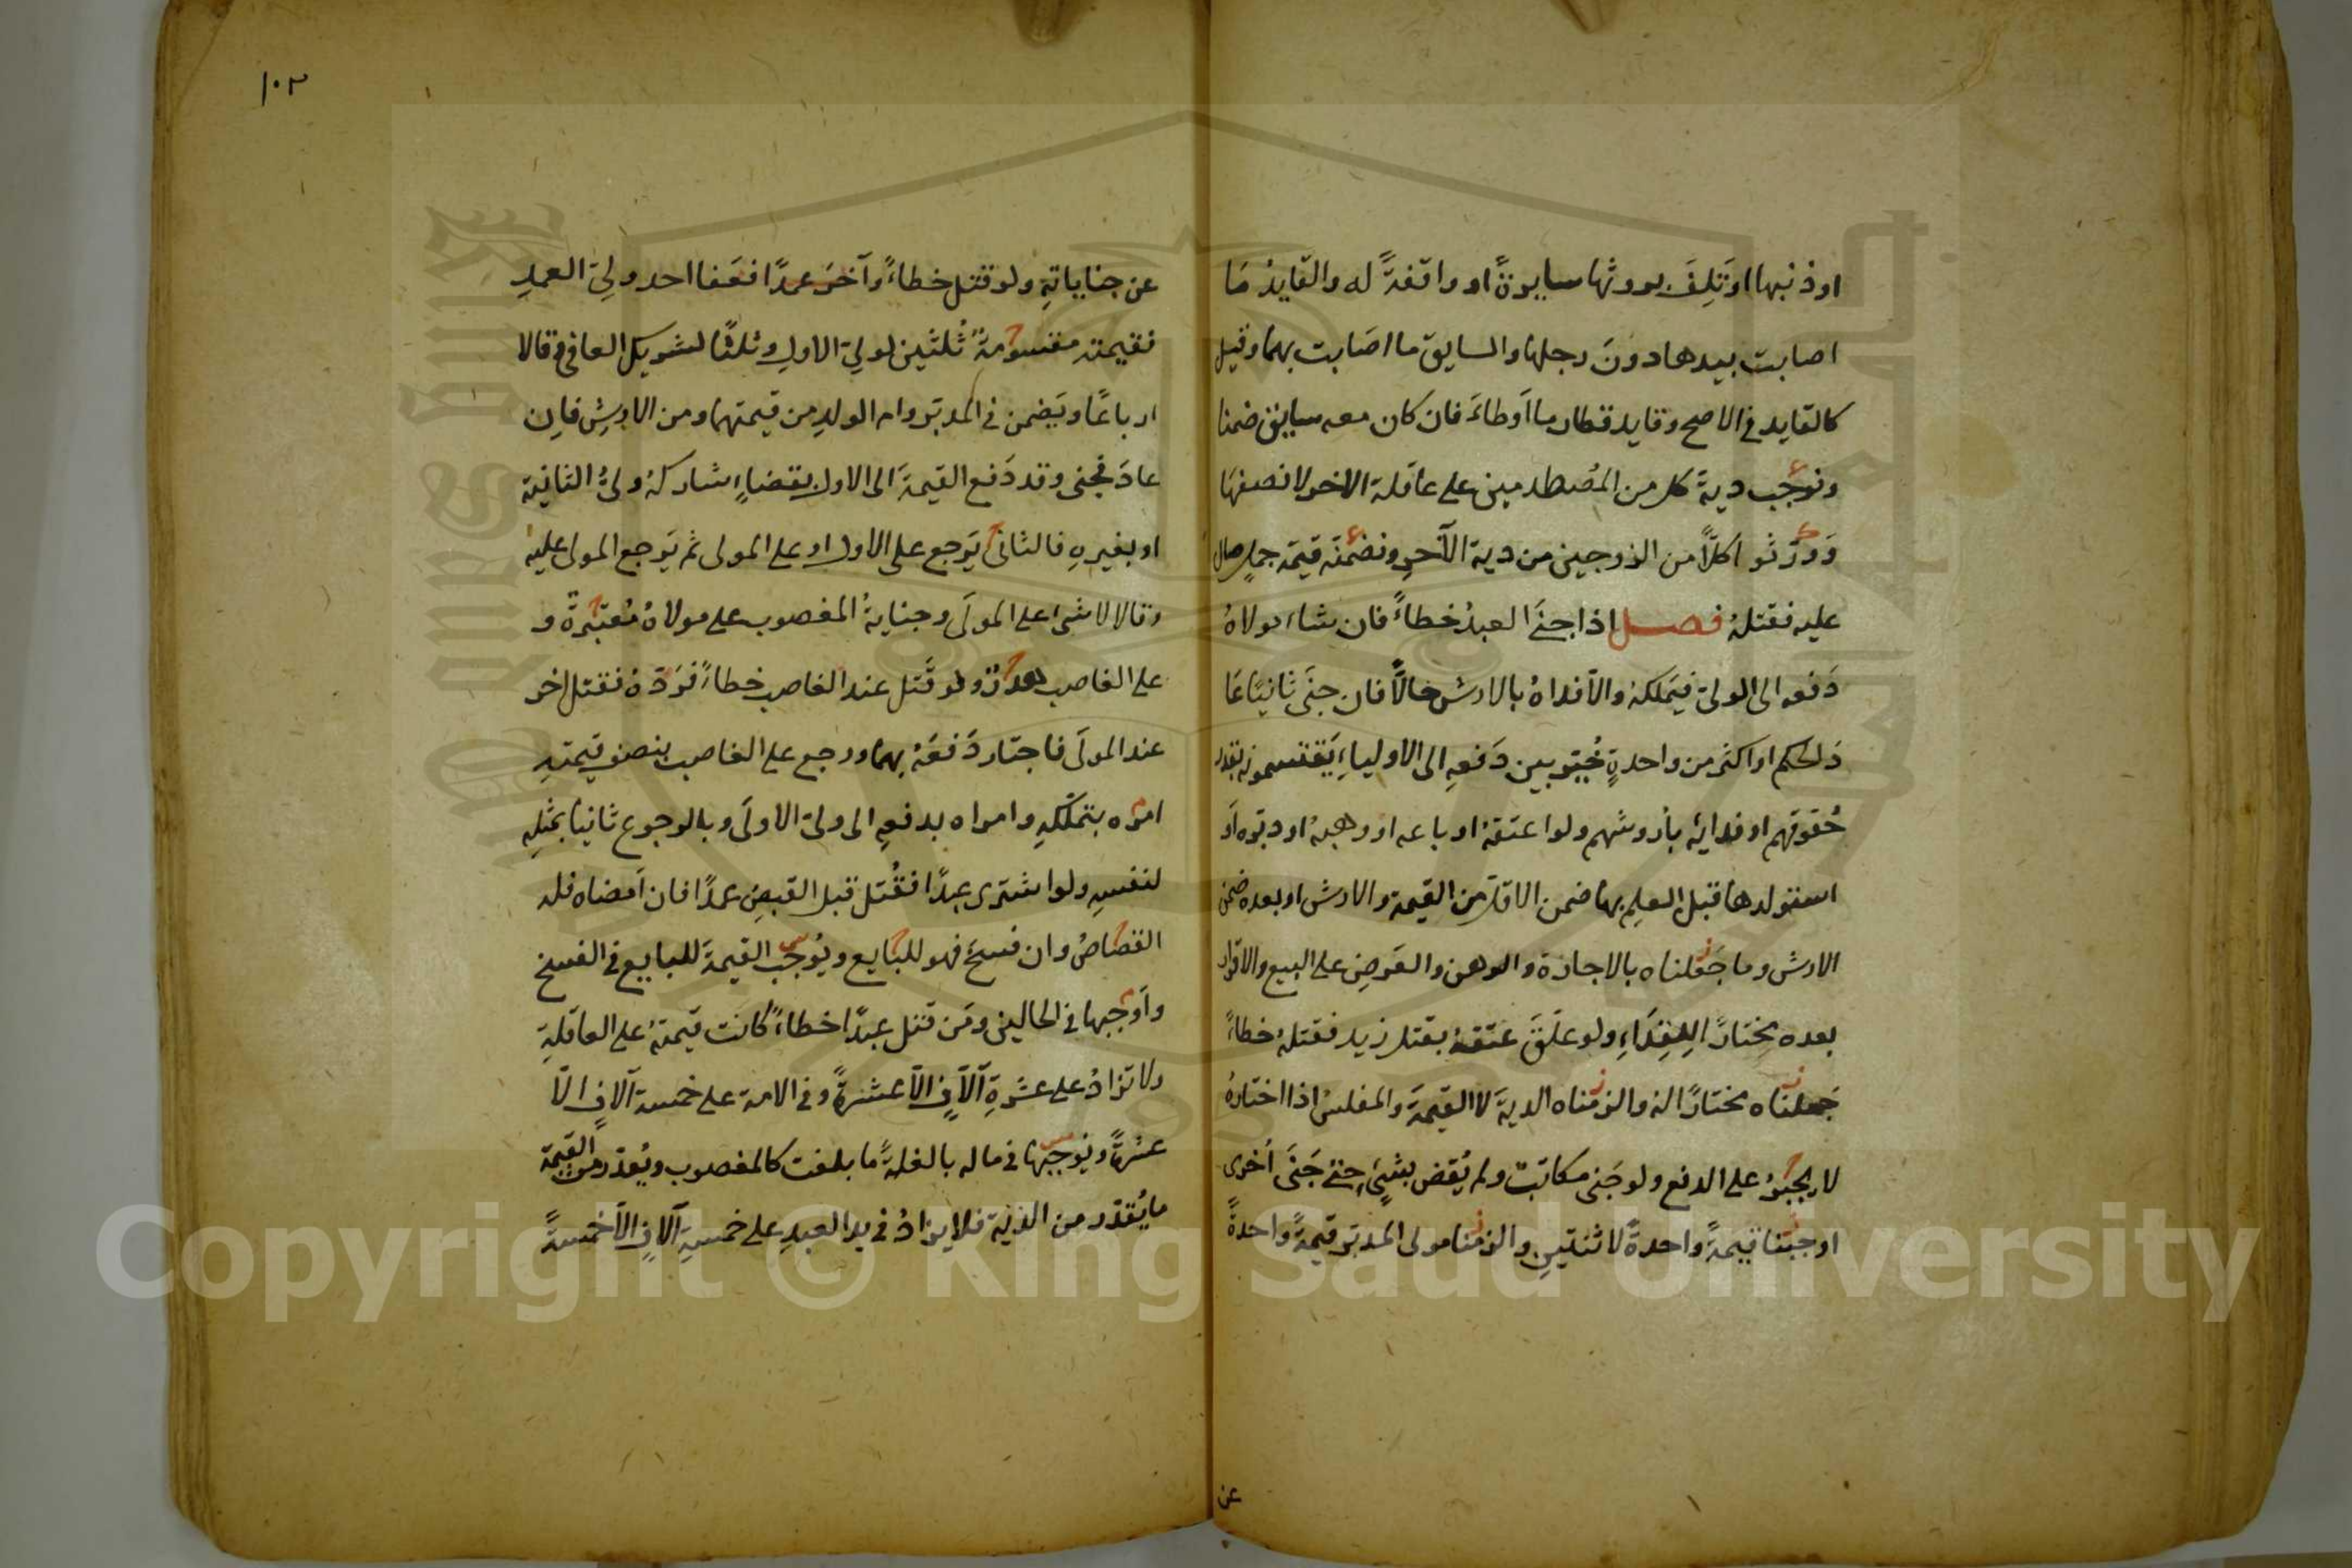 او ذنبها او تَلِفَ بروثها سايرةً او واقفةً له والقايدُ مَا
اصابت بيدها دونَ رجلها والسايق ما اصَابت بهما وقيل
كالقايد فى الاصح وقايد قطار ما اَوطاءَ فان كان معه سايق ضمنا
ونوجب دية كل من المُصطدمين على عاقلة الاخر لا نصفهَا
وَورّثوا كلاًّ من الزوجين من دية الآخرِ ونضمنهُ قيمة جملٍ صال
عليه فقتلهُ فصل اذا جنَى العبدُ خطاءً فان شاء مولاهُ
دَفعه الى الولىّ فيَملكهُ والاّ فداهُ بالارش حالاًّ فان جنَى ثانيًا عَا
دَ الحكم او اكثر من واحدةٍ خُيّر بين دَفعهِ الى الاولياءِ يَقتسمونه بقدر
حُقوقهم او فدائه بأروشهم ولو اعتقهُ او باعه او وهبهُ او دبّره اَو
استولدها قبل العلمِ بها ضمن الاقلّ من القيمة والارش او بعده ضمن
الارش وما جَعَلناه بالاجارة والرهن والعَرضِ على البيع والاقرار
بعده مختارًا للفِدَاءِ ولو علّقَ عتقهُ بقتل زيد فقتلهُ خطاءً
جَعلناه مختارًا له والزمناه الديةَ لا القيمةَ والمفلسُ اذا اختارهُ
لا يجبرُ على الدفع ولو جَنى مكاتبٌ ولم يُقض بشئٍ حتى جَنَى اُخرى
اوجبنا قيمةً واحدةً لا ثنتينِ والزمنا مولى المدبّر قيمةً واحدةً
عن
١٠٣
عن جناياتهِ ولو قتل خطاءً وآخرَ عمدًا فعَفا احد ولىّ العمدِ
فقيمته مقسومةٌ ثُلثين لولىّ الاولِ وثلثًا لشريك العافى وقالا
ارباعًا ويَضمن فى المدبّر وام الولدِ من قيمتهما ومن الارشِ فاِن
عادَ فجنى وقد دَفع القيمةَ الى الاول بقضاءٍ شاركهُ ولىُّ الثانية
او بغيرهِ فالثانى يَرجع على الاول او على المولى ثم يَرجع المولى عليه
وقالا لا شئ على المولَى وجنايةُ المغصوب على مولاهُ مُعتبَرةٌ و
على الغاصب هدرٌ ولو قَتل عند الغاصب خطاءً فرَدّهُ فقتل اخر
عند المولَى فاختار دَفعَهُ بهما ورجع على الغاصب بنصف قيمتهِ
امره بتملّكهِ وامراه بدفعهِ الى ولىّ الاولَى وبالرجوع ثانيًا بمثلِه
لنفسهِ ولو اشترى عبدًا فقُتل قبل القبضِ عمدًا فان اَمضاه فله
القصَاصُ وان فسخَ فهو للبَايع ويُوجب القيمةَ للبايع فى الفسخ
واَوجبها فى الحالين ومَن قتل عبدًا خطاءً كانت قيمتهُ على العاقلةِ
ولا تزادُ على عشرةِ آلآفٍ الاّ عشرةً وفى الامة على خمسة آلافٍ الاّ
عشرةً ويُوجبها فى ماله بالغةً ما بلغت كالمغصوب ويُقدّر من القيمة
ما يُقدّر من الدّية فلا يزادُ فى يد العبدِ على خمسةِ آلافٍ الاّ خمسةً
Copyright © King Saud University